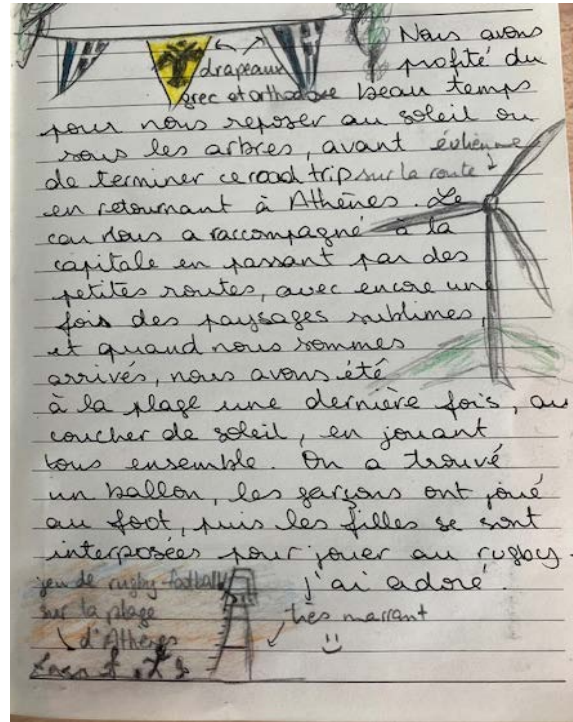 Nous avons
profité du
drapeaux
grec et orthodoxe
beau temps
pour nous reposer au soleil ou
sous les arbres, avant
éolienne
de terminer ce road trip
sur la route
en retournant à Athènes. Le
car nous a raccompagné à la
capitale en passant par des
petites routes, avec encore une
fois des paysages sublimes,
et quand nous sommes
arrivés, nous avons été
à la plage une dernière fois, au
coucher de soleil, en jouant
tous ensemble. On a trouvé
un ballon, les garçons ont joué
au foot, puis les filles se sont
interposées pour jouer au rugby.
j'ai adoré.
jeu de rugby-football
sur la plage
d'Athènes
très marrant